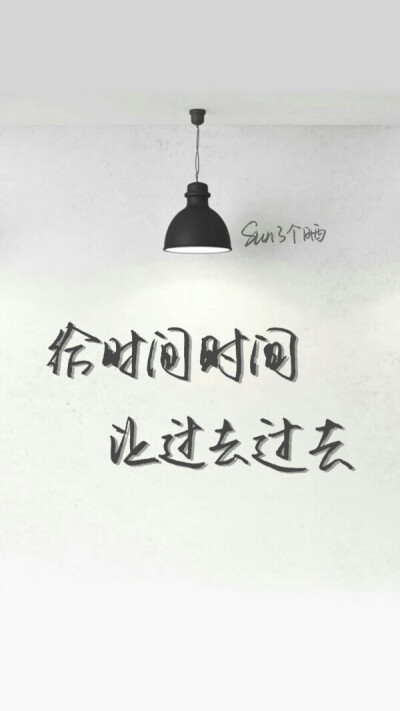 Sun了个晒
给时间时间
让过去过去